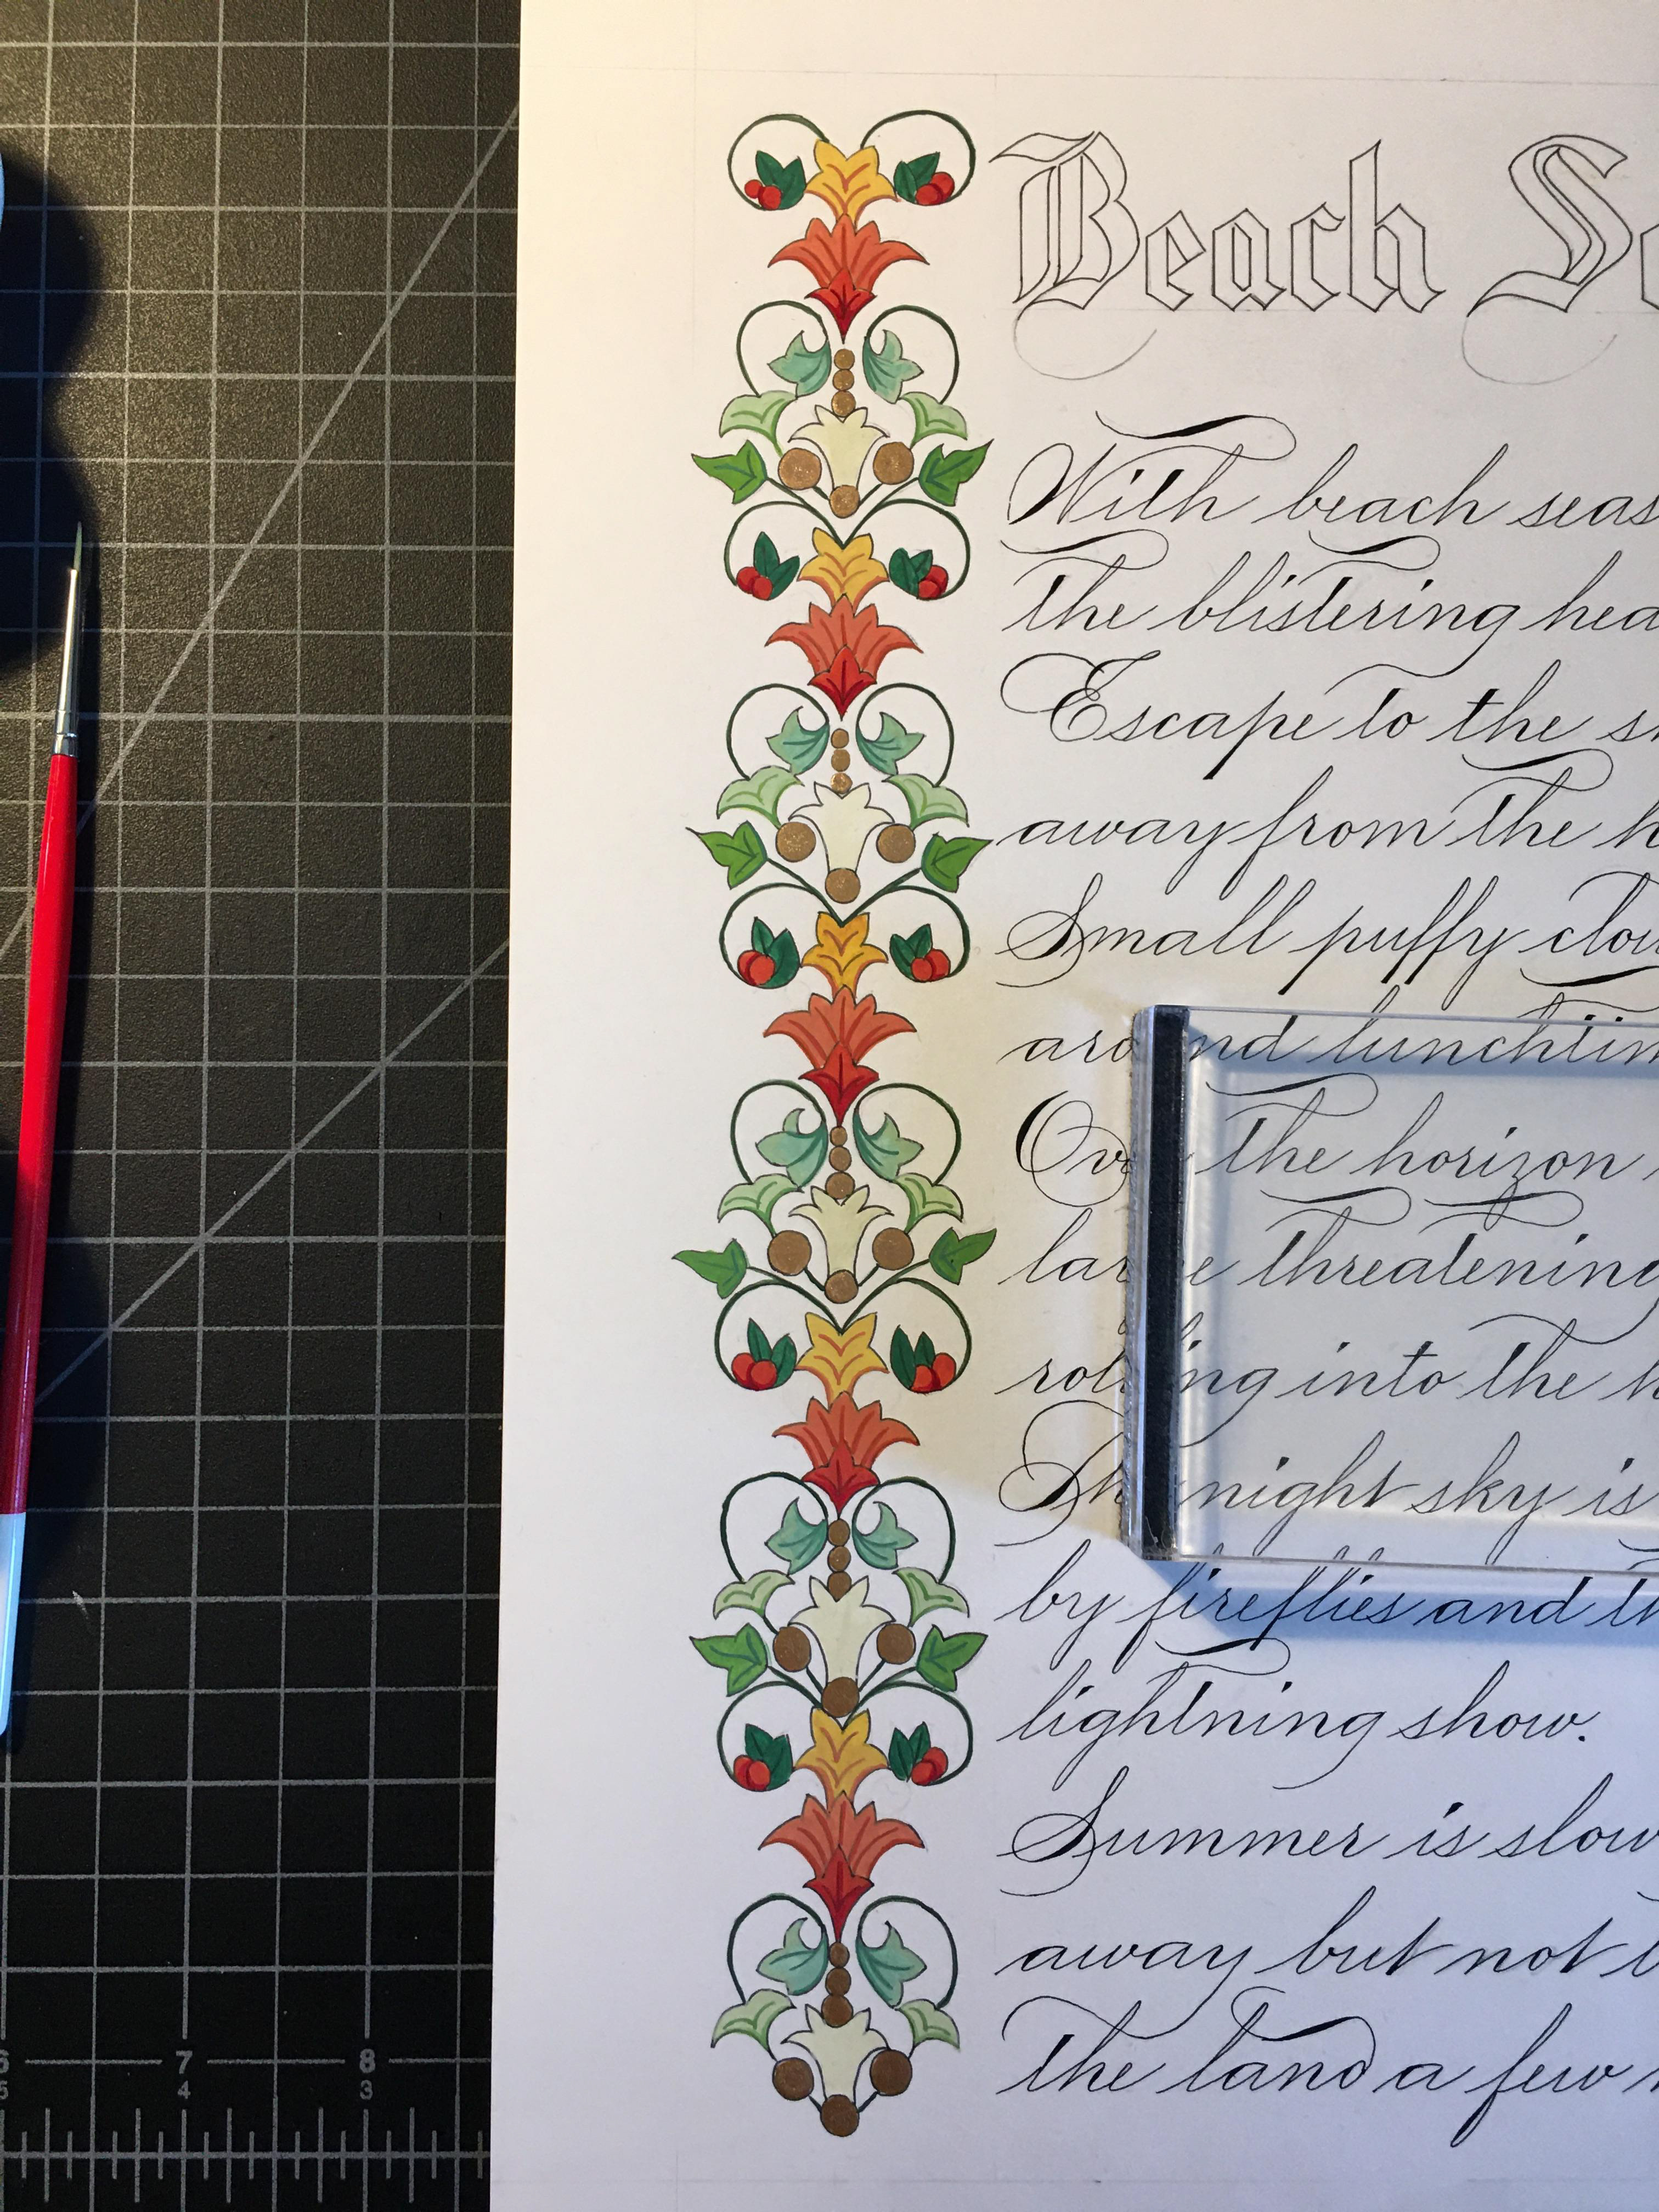 Beach
With beach
the blistering
Escape to the
away from the
Small puffy
around
Over the horizon
large threatening
rolling into the
The night sky is
by fireflies and
lightning show.
Summer is
away but not
the land a few
7 8
4 3